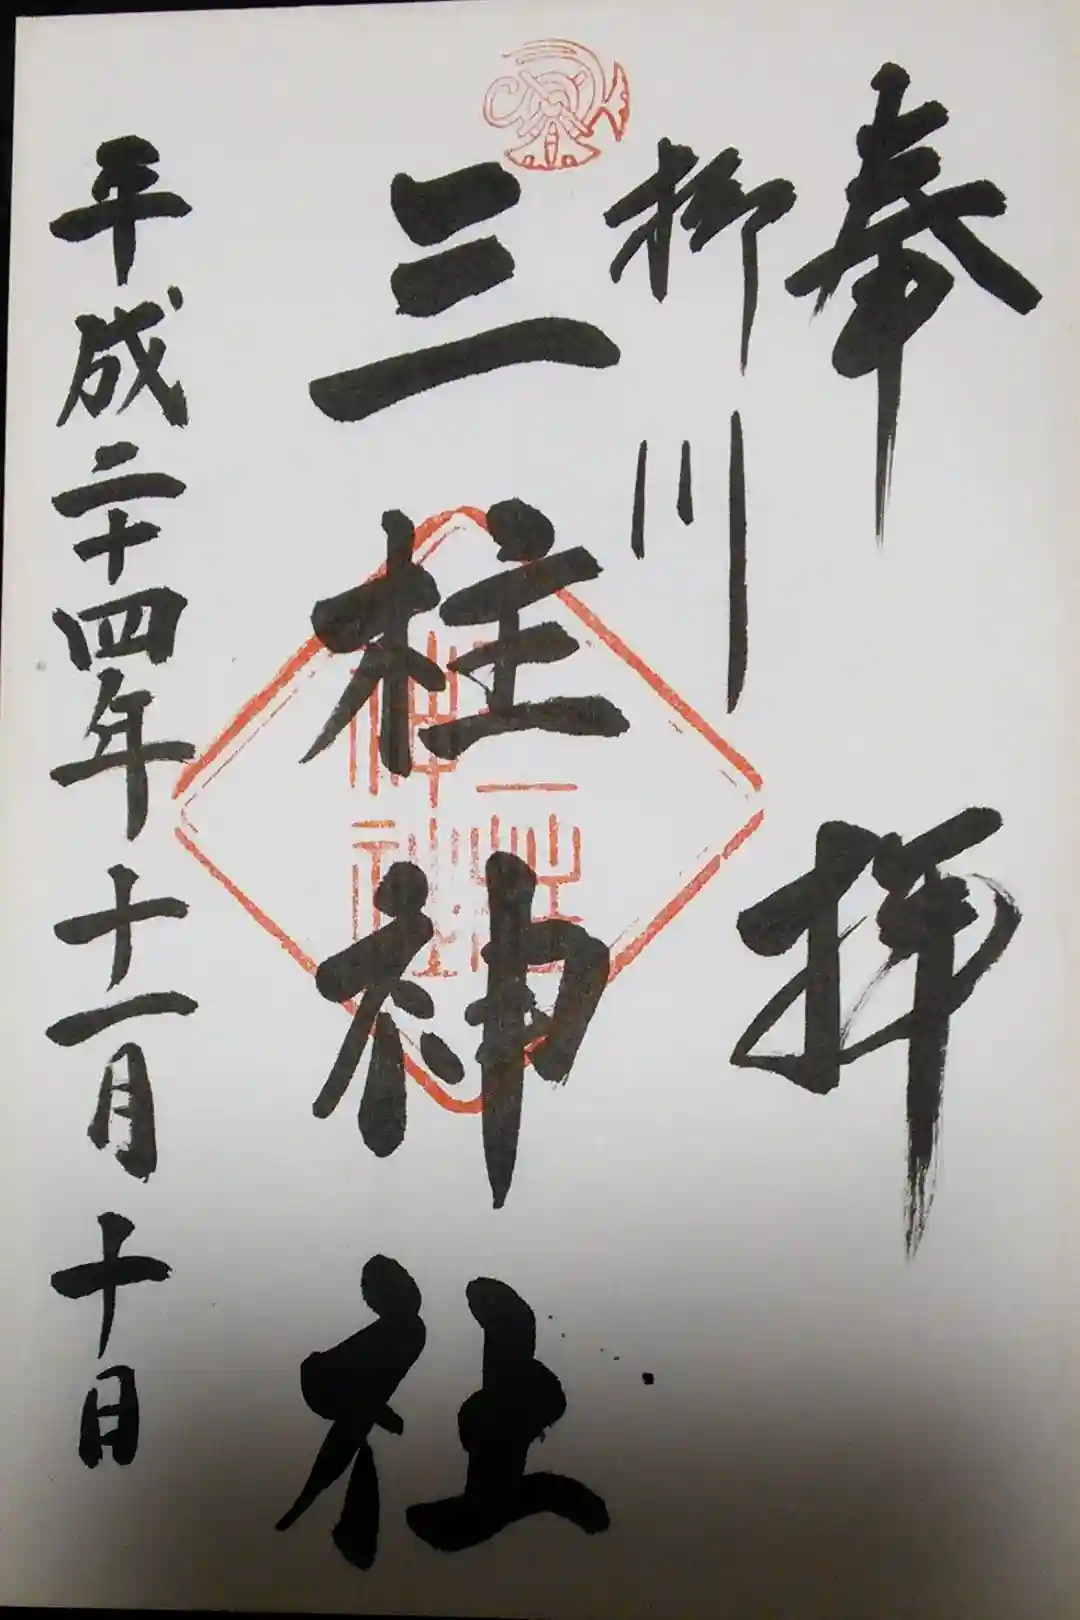 奉拝
柳川
三柱神社
平成二十四年十一月十日
三柱
神社